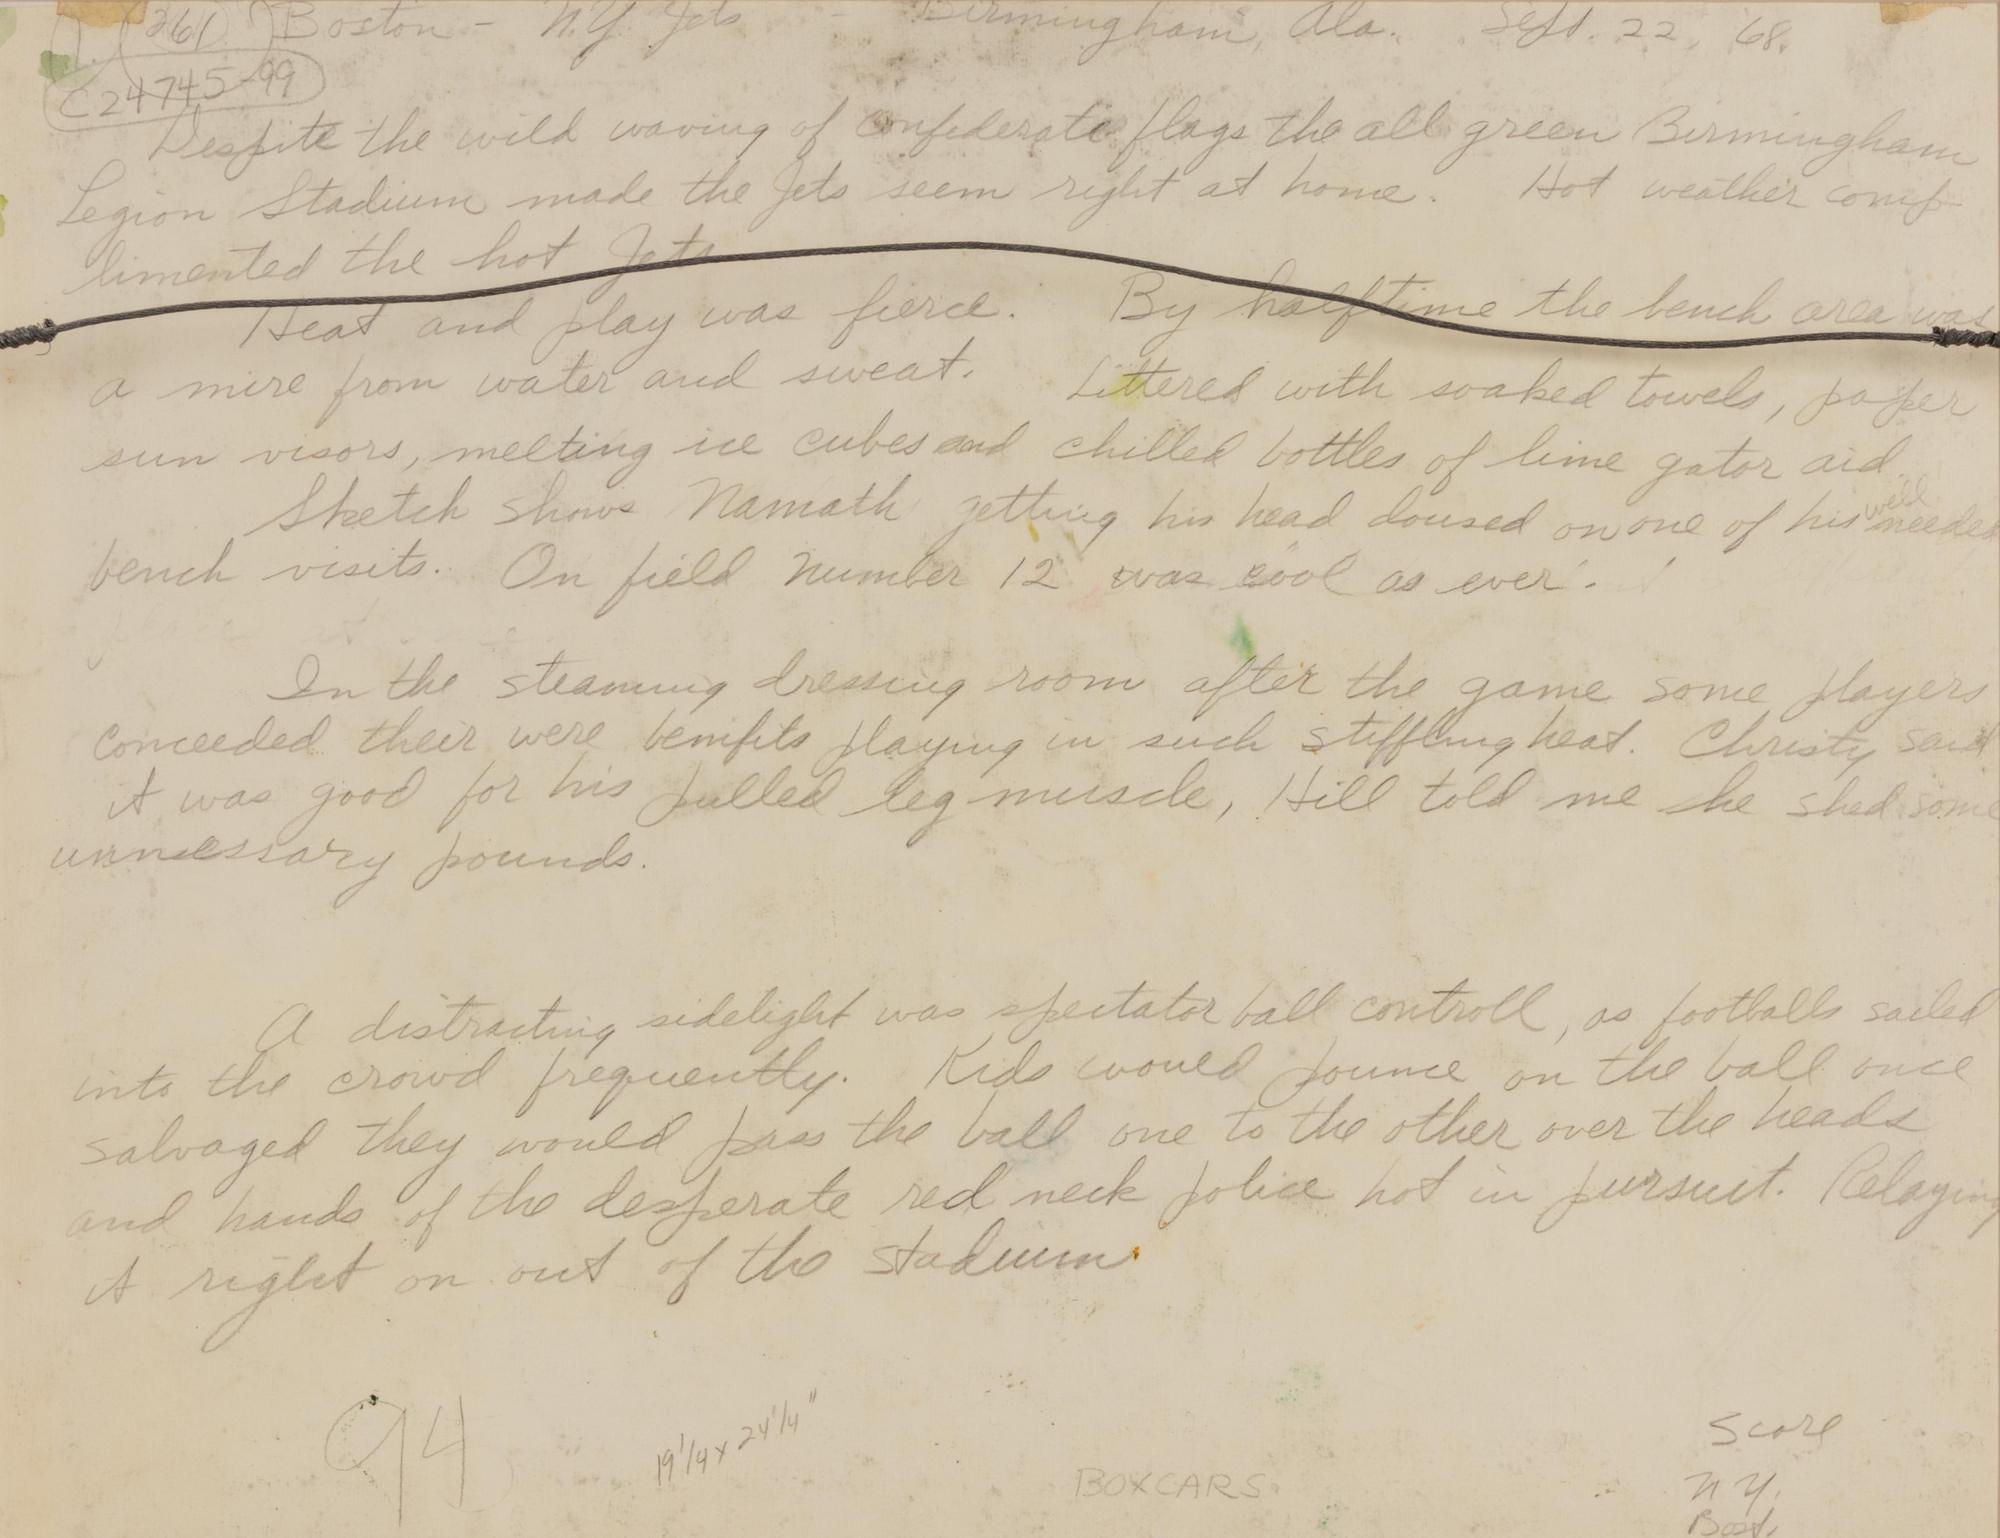 361 Boston - N.Y. Jets - Birmingham, Ala. Sept. 22, '68.
C24745-99
Despite the wild waving of confederate flags the all green Birmingham
Legion Stadium made the Jets seem right at home. Hot weather comp-
limented the hot Jets
Heat and play was fierce. By halftime the bench area was
a mire from water and sweat. Littered with soaked towels, paper
sun visors, melting ice cubes and chilled bottles of lime gator aid
Sketch shows Namath getting his head doused on one of his well needed
bench visits. On field number 12 was cool as ever.
In the steaming dressing room after the game some players
conceeded their were benifits playing in such stiffling heat. Christy said
it was good for his pulled leg muscle, Hill told me he shed some
unnessary pounds.
A distracting sidelight was spectator ball controll, as footballs sailed
into the crowd frequently. Kids would pounce on the ball once
salvaged they would pass the ball one to the other over the heads
and hands of the desperate red neck police hot in pursuit. Relaying
it right on out of the stadium.
94
19 1/4 x 24 1/4"
BOXCARS
Score
N.Y.
Bost.